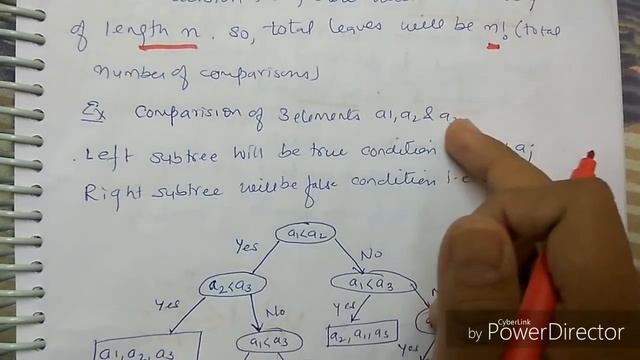 of length n. so, total leaves will be n! (total
number of comparisons)
Ex Comparision of 3 elements a1, a2 &
. Left subtree will be true condition aj
Right subtree will be false condition i.e
a1<a2
Yes No
a2<a3 a1<a3
Yes No Yes
a1, a2, a3 a1<a3 a2, a1, a3
Yes
CyberLink
by PowerDirector